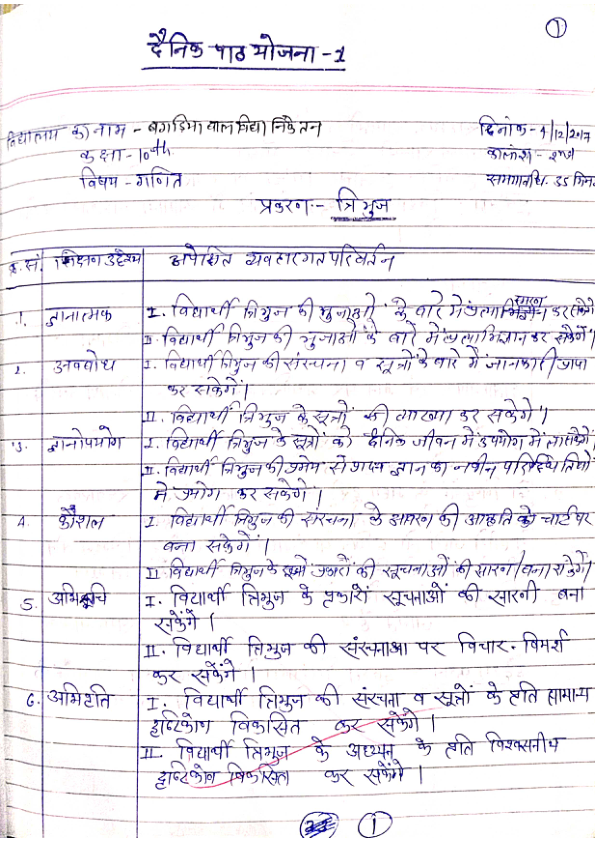 1
दैनिक पाठ योजना -1
विद्यालय का नाम - बगडिया बाल विद्या निकेतन
दिनांक - 4/12/2017
कक्षा - 10th
कालांश - 2nd
विषय - गणित
समयावधि. 35 मिनट
प्रकरण:- त्रिभुज
क्र.सं. शिक्षण उद्देश्य अपेक्षित व्यवहारगत परिवर्तन
1. ज्ञानात्मक I. विद्यार्थी त्रिभुज की भुजाओं के बारे में प्रत्यास्मरण कर सकेंगे
II. विद्यार्थी त्रिभुज की भुजाओं के बारे में प्रत्याभिज्ञान कर सकेंगे।
2. अवबोध I. विद्यार्थी त्रिभुज की संरचना व सूत्रों के बारे में जानकारी प्राप्त
कर सकेंगे।
II. विद्यार्थी त्रिभुज के सूत्रों की व्याख्या कर सकेंगे।
3. ज्ञानोपयोग I. विद्यार्थी त्रिभुज के सूत्रों को दैनिक जीवन में उपयोग में ला सकेंगे।
II. विद्यार्थी त्रिभुज की प्रमेय से प्राप्त ज्ञान का नवीन परिस्थितियों
में प्रयोग कर सकेंगे।
4. कौशल I. विद्यार्थी त्रिभुज की संरचना के की आकृति को चार्ट पर
बना सकेंगे।
II. विद्यार्थी त्रिभुज के प्रकारों की सूचनाओं की सारणी बना सकेंगे।
5. अभिरूचि I. विद्यार्थी त्रिभुज के प्रकारों सूचनाओं की सारनी बना
सकेंगे।
II. विद्यार्थी त्रिभुज की संरचनाओं पर विचार-विमर्श
कर सकेंगे।
6. अभिवृति I. विद्यार्थी त्रिभुज की संरचना व सूत्रों के प्रति सामान्य
दृष्टिकोण विकसित कर सकेंगे।
II. विद्यार्थी त्रिभुज के अध्ययन के प्रति विश्वसनीय
दृष्टिकोण विकसित कर सकेंगे।
1